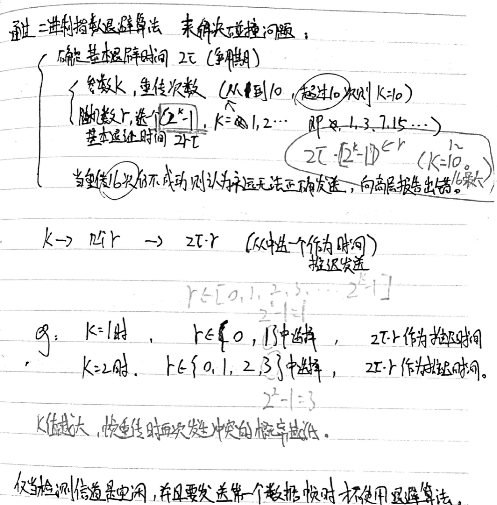 通过二进制指数退避算法 来解决碰撞问题：
确定基本退避时间 2τ (争用期)
参数K，重传次数 (从1到10，超过10次则K=10)
随机数r，选个[2^k-1]，K=1,2… 即 1,3,7,15…)
基本退避时间 2rτ
2τ·[2^k-1] ←r (K=1~10。16最大)
当重传16次仍不成功则认为永远无法正确发送，向高层报告出错。
K→ 随r → 2τ·r (从中选一个作为时间)
推迟发送
r∈[0,1,2,3,…2^k-1]
2^1-1=1
eg: K=1时， r∈{0，1}中选择， 2τ·r作为推迟时间
K=2时. r∈{0,1,2,3}中选择， 2τ·r作为推迟时间。
2^2-1=3
K值越大，帧重传时再次发生冲突的概率越低。
仅当检测信道是空闲，并且要发送第一个数据帧时才不使用退避算法。